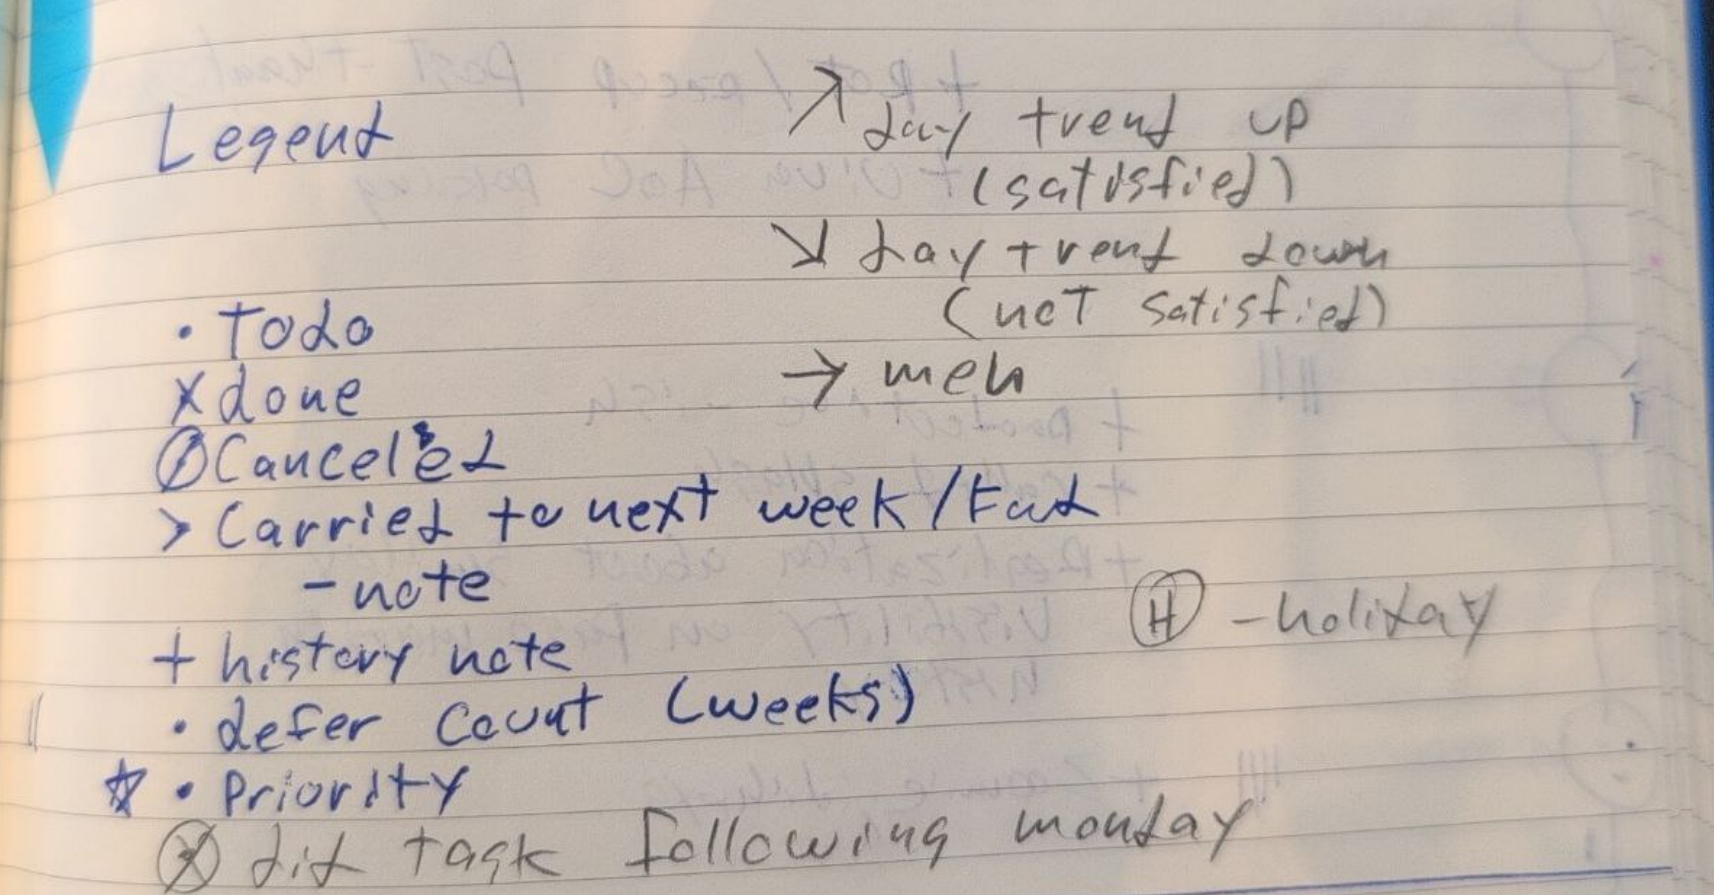 Legend
• Todo
x done
⊘ Canceled
> Carried to next week/
- note
+ history note
|| • defer count (weeks)
☆ • Priority
ⓧ did task following monday
↗ day trend up
(satisfied)
↘ day trend down
(not satisfied)
→ meh
Ⓗ - holiday